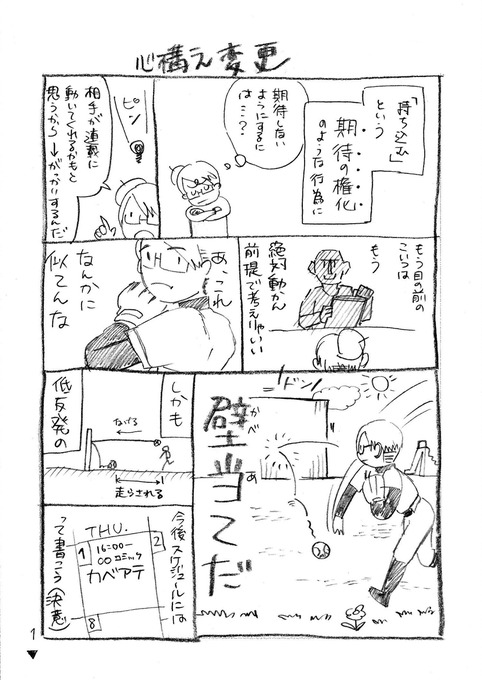 心構え変更
「持ち込み」
という
期待の権化
のような行為に
期待しない
ようにするに
は…?
ピン
相手が連載に
動いてくれるかもと
思うから→がっかりするんだ
もう目の前の
こいつは
もう
絶対動かん
前提で考えりゃいい
あ、これ
なんかに
似てんな
ドン
壁当てだ
かべ
あ
しかも
低反発の
なげる
走らされる
今後スケジュールには
THU.
1
2
16:00—
〇〇コミック
カベアテ
8
って書こう(決意)
1